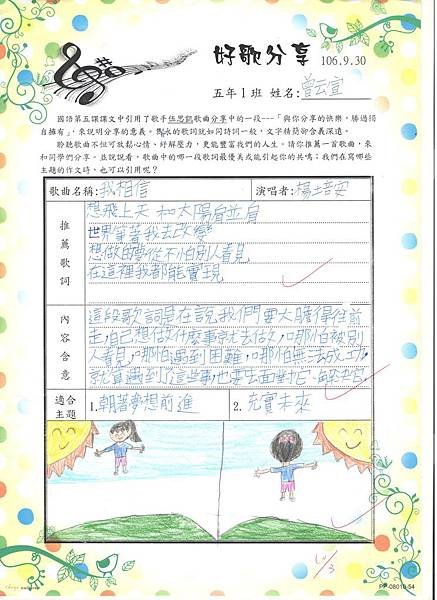 好歌分享 106.9.30
五年1班 姓名:曾云宣
國語第五課課文中引用了歌手伍思凱歌曲分享中的一段---「與你分享的快樂,勝過獨
自擁有」,來說明分享的意義。雋永的歌詞就如同詩詞一般,文字精簡卻含義深遠。
聆聽歌曲不但可放鬆心情、紓解壓力,更能豐富我們的人生。請你推薦一首歌曲,來
和同學們分享。並說說看,歌曲中的哪一段歌詞最優美或能引起你的共鳴;我們在寫哪些
主題的作文時,也可以引用呢?
歌曲名稱:我相信 演唱者:楊培安
推薦歌詞
想飛上天 和太陽肩並肩
世界等著我去改變
想做的夢從不怕別人看見
在這裡我都能實現
內容含意
這段歌詞是在說我們要大膽得往前
走,自己想做什麼事就去做,哪怕被別
人看見,哪怕遇到困難,哪怕無法成功,
就算遇到了這些事,也要去面對它、解決它。
適合主題
1.朝著夢想前進 2.充實未來
PP-08010-54